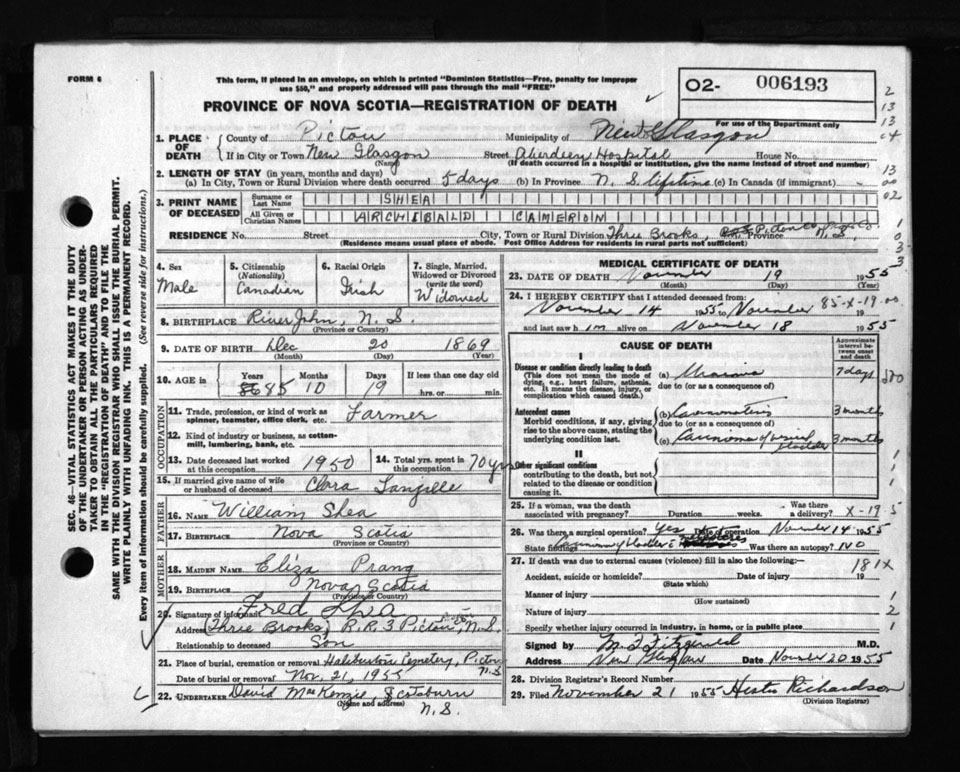 FORM 6
This form, if placed in an envelope, on which is printed "Dominion Statistics—Free, penalty for improper
use $50," and properly addressed will pass through the mail "FREE"
O2- 006193
PROVINCE OF NOVA SCOTIA—REGISTRATION OF DEATH
For use of the Department only
1. PLACE OF DEATH
County of Pictou Municipality of New Glasgow
If in City or Town New Glasgow Street Aberdeen Hospital House No.
(Name) (If death occurred in a hospital or institution, give the name instead of street and number)
2. LENGTH OF STAY (in years, months and days)
(a) In City, Town or Rural Division where death occurred 5 days (b) In Province N. S. lifetime (c) In Canada (if immigrant) -
3. PRINT NAME OF DECEASED
Surname or Last Name SHEA
All Given or Christian Names ARCHIBALD CAMERON
RESIDENCE No. Street City, Town or Rural Division Three Brooks, Pictou Co. Province N. S.
(Residence means usual place of abode. Post Office Address for residents in rural parts not sufficient)
4. Sex Male
5. Citizenship (Nationality) Canadian
6. Racial Origin Irish
7. Single, Married, Widowed or Divorced (write the word) Widowed
8. BIRTHPLACE River John, N. S.
(Province or Country)
9. DATE OF BIRTH Dec 20 1869
(Month) (Day) (Year)
10. AGE in Years Months Days If less than one day old
85 10 19 hrs. or min.
OCCUPATION
11. Trade, profession, or kind of work as spinner, teamster, office clerk, etc. Farmer
12. Kind of industry or business, as cotton-mill, lumbering, bank, etc.
13. Date deceased last worked at this occupation 1950
14. Total yrs. spent in this occupation 70 yrs
15. If married give name of wife or husband of deceased Clara Langille
FATHER
16. Name William Shea
17. Birthplace Nova Scotia
(Province or Country)
MOTHER
18. Maiden Name Eliza Prang
19. Birthplace Nova Scotia
(Province or Country)
20. Signature of informant Fred Shea
Address (Three Brooks) R.R. 3 Pictou, N.S.
Relationship to deceased Son
21. Place of burial, cremation or removal Haliburton Cemetery, Pictou N.S.
Date of burial or removal Nov. 21, 1955
22. Undertaker David MacKenzie, Scotsburn
(Name and address) N. S.
MEDICAL CERTIFICATE OF DEATH
23. DATE OF DEATH November 19 1955
(Month) (Day)
24. I HEREBY CERTIFY that I attended deceased from:
November 14 1955 to November 19
85-X-19.00
and last saw him alive on November 18 1955
CAUSE OF DEATH
Approximate interval between onset and death
I
Disease or condition directly leading to death
(This does not mean the mode of dying, e.g., heart failure, asthenia, etc. It means the disease, injury, or complication which caused death.)
(a) Uraemia 7 days
due to (or as a consequence of)
Antecedent causes
Morbid conditions, if any, giving rise to the above cause, stating the underlying condition last.
(b) Carcinomatosis 3 months
due to (or as a consequence of)
(c) Carcinoma of urinary bladder 3 months
II
Other significant conditions
contributing to the death, but not related to the disease or condition causing it.
25. If a woman, was the death associated with pregnancy? Duration weeks. Was there a delivery?
X-19
26. Was there a surgical operation? Yes Date of operation November 14 1955
State findings Carcinoma of bladder Was there an autopsy? NO
27. If death was due to external causes (violence) fill in also the following:—
181X
Accident, suicide or homicide? Date of injury 19
(State which)
Manner of injury
(How sustained)
Nature of injury
Specify whether injury occurred in industry, in home, or in public place
Signed by M D Fitzgerald M.D.
Address New Glasgow Date November 20 1955
28. Division Registrar's Record Number
29. Filed November 21 1955 Hester Richardson
(Division Registrar)
SEC. 46—VITAL STATISTICS ACT MAKES IT THE DUTY
OF THE UNDERTAKER OR PERSON ACTING AS UNDER-
TAKER TO OBTAIN ALL THE PARTICULARS REQUIRED
IN THE "REGISTRATION OF DEATH" AND TO FILE THE
SAME WITH THE DIVISION REGISTRAR WHO SHALL ISSUE THE BURIAL PERMIT.
WRITE PLAINLY WITH UNFADING INK. THIS IS A PERMANENT RECORD.
Every item of Information should be carefully supplied. (See reverse side for instructions.)